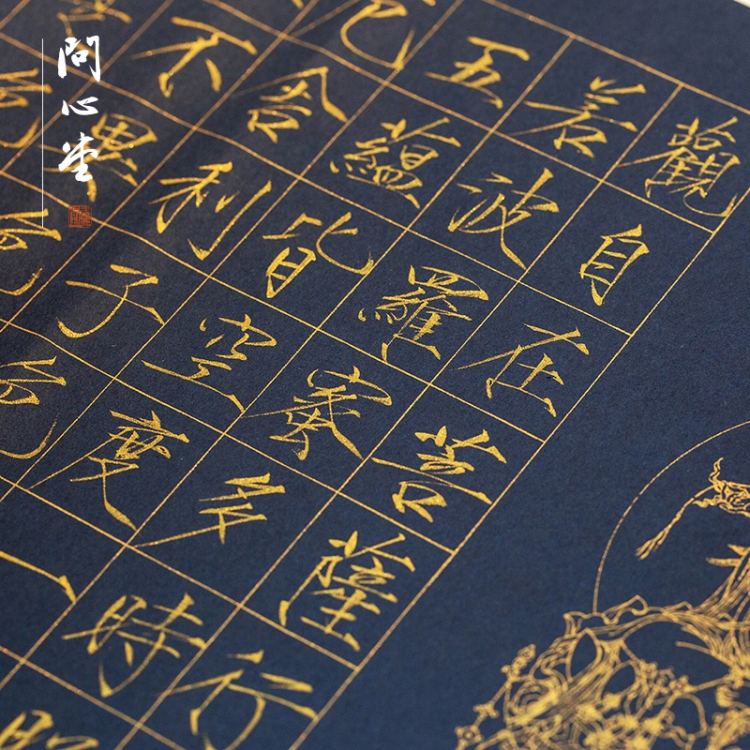 問心堂
觀自在菩薩行
若波羅蜜多時照
五蘊皆空度一
厄舍利子色
不異色
色